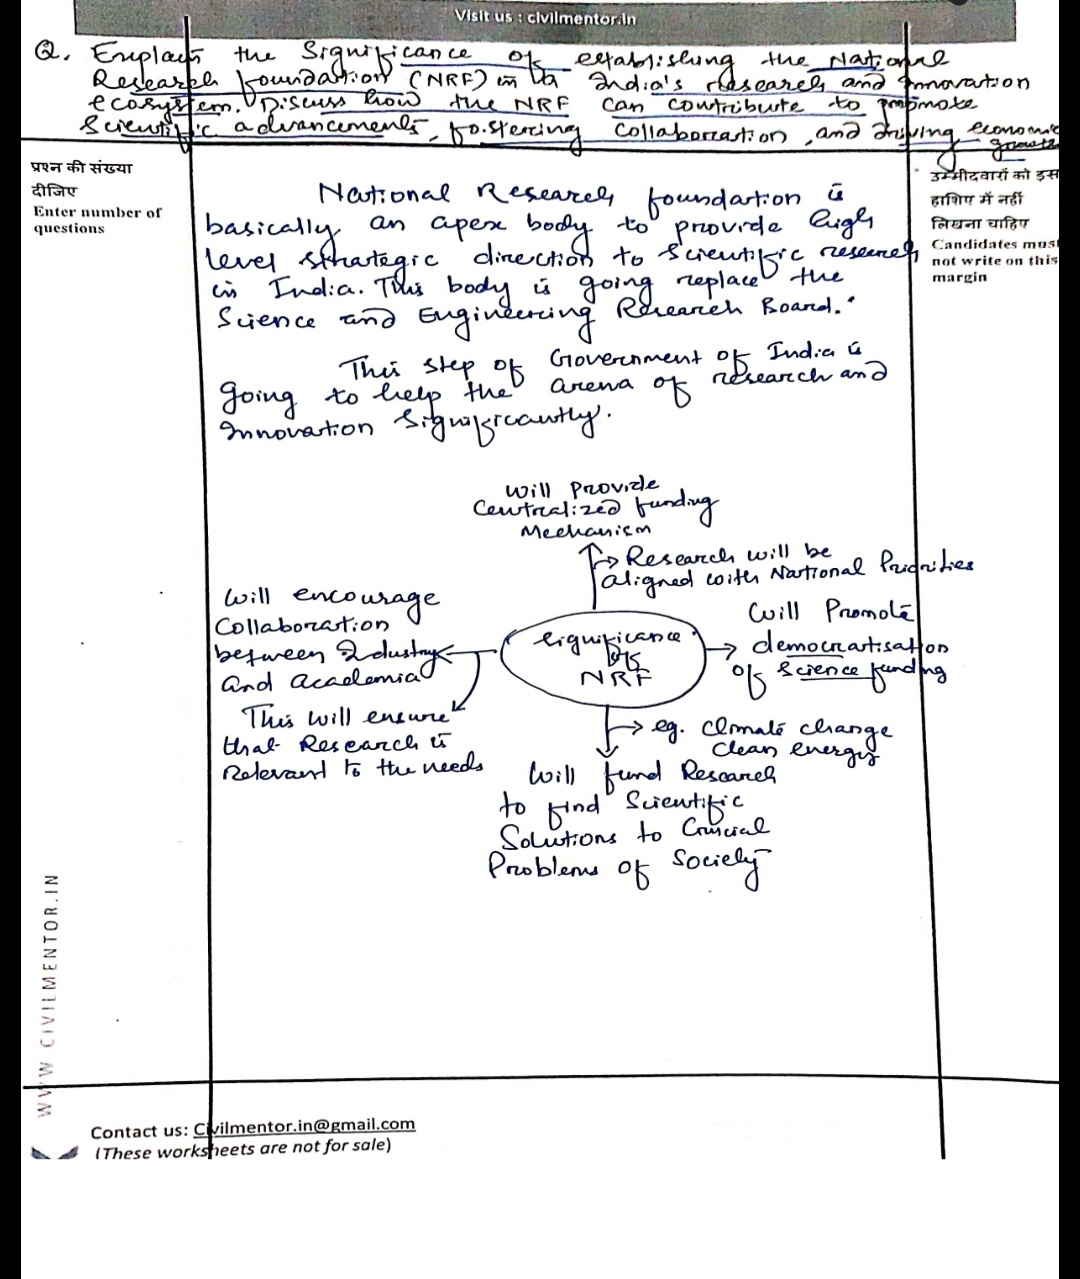 Visit us : civilmentor.in
Q. Explain the Significance of establishing the National
Research foundation (NRF) in India's research and innovation
ecosystem. Discuss how the NRF can contribute to promote
Scientific advancements, fostering collaboration, and driving economic
growth
प्रश्न की संख्या
दीजिए
Enter number of
questions
National Research foundation is
basically an apex body to provide high
level strategic direction to scientific research
in India. This body is going replace the
Science and Engineering Research Board.
This step of Government of India is
going to help the arena of research and
innovation significantly.
उम्मीदवारों को इस
हाशिए में नहीं
लिखना चाहिए
Candidates must
not write on this
margin
Will Provide
Centralized funding
Mechanism
Research will be
aligned with National Priorities
Will encourage
Collaboration
between Industry
and academia
This will ensure
that Research is
relevant to the needs
significance
of
NRF
Will Promote
democratisation
of science funding
eg. Climate change
clean energy
Will fund Research
to find Scientific
Solutions to Crucial
Problems of Society
WWW CIVILMENTOR.IN
Contact us: Civilmentor.in@gmail.com
(These worksheets are not for sale)